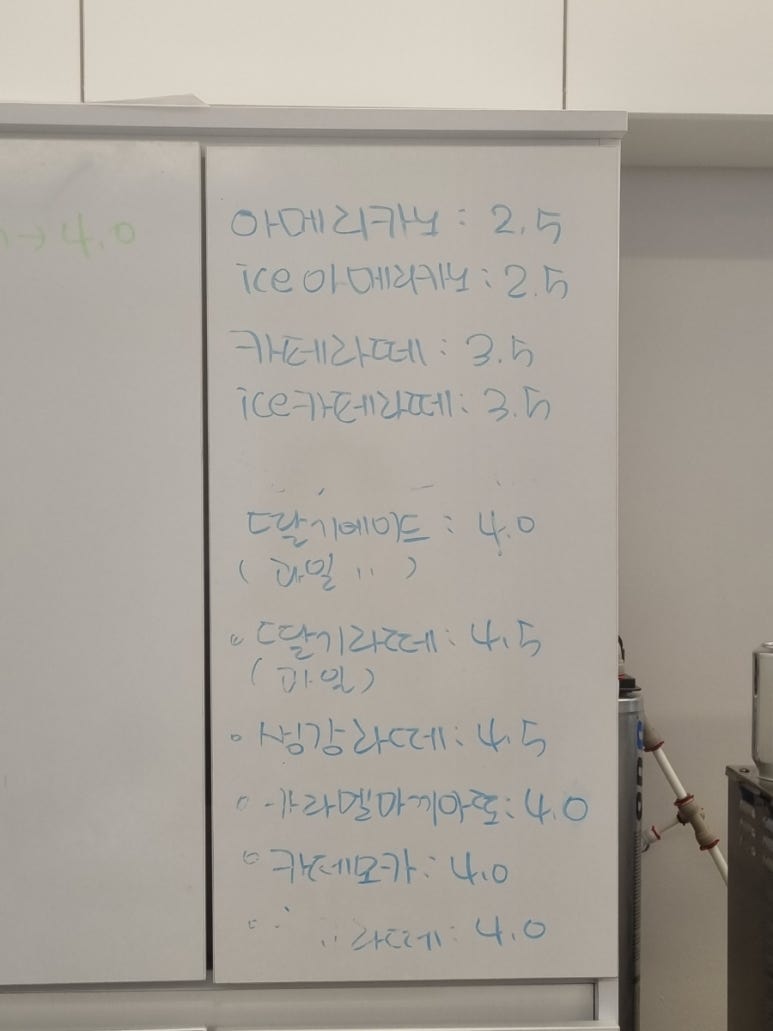 → 4.0
아메리카노 : 2.5
ice 아메리카노 : 2.5
카페라떼 : 3.5
ice카페라떼 : 3.5
딸기에이드 : 4.0
( 과일 〃 )
딸기라떼 : 4.5
( 과일 )
생강라떼 : 4.5
카라멜마끼아또 : 4.0
카페모카 : 4.0
라떼 : 4.0